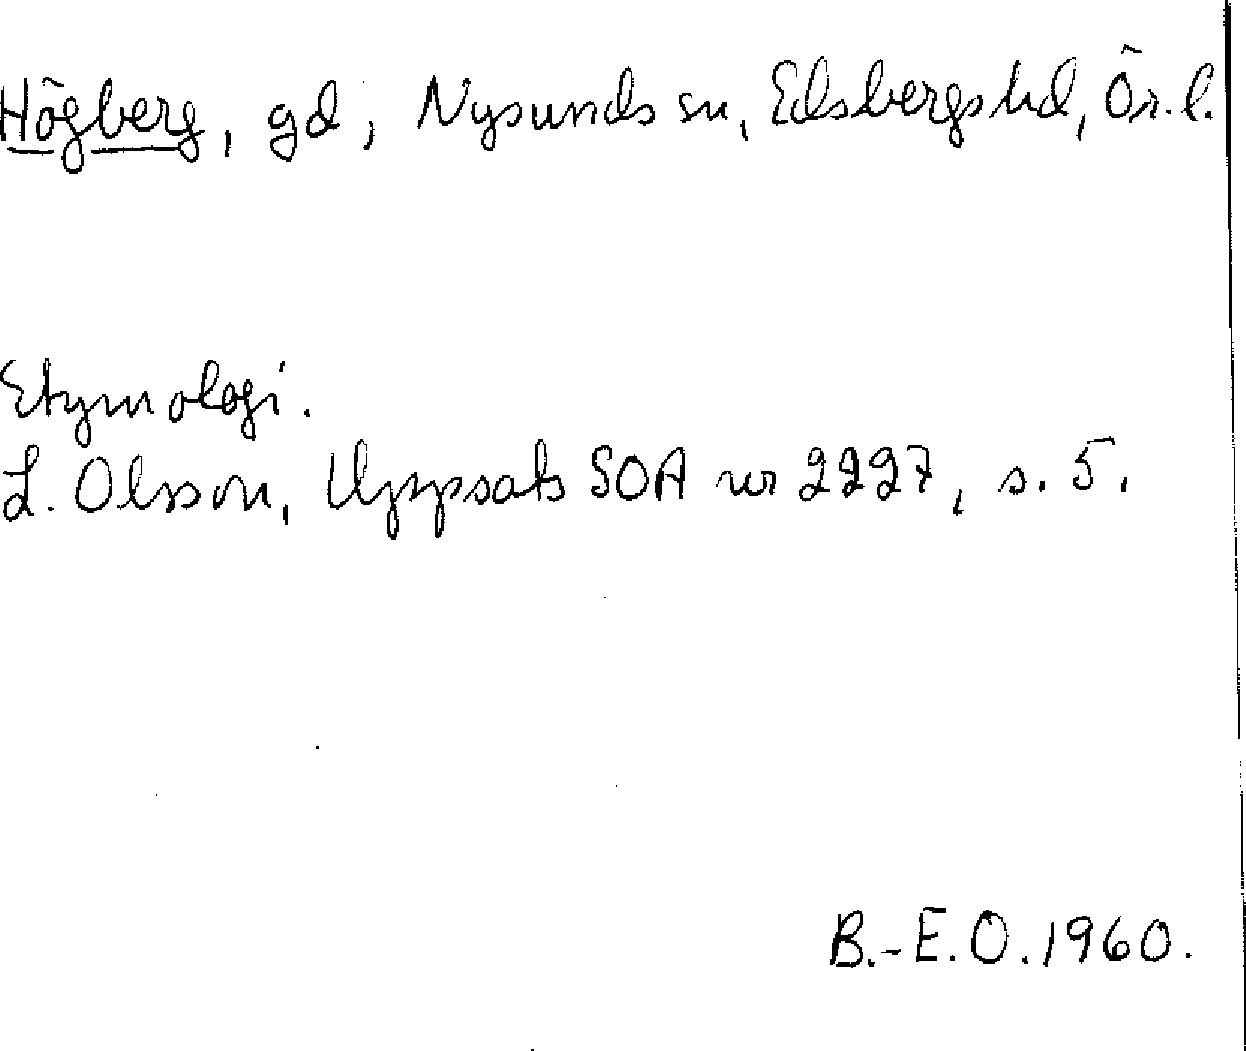 Högberg, gd, Nysunds sn, Edsbergs hd, Ör.l.
Etymologi.
L. Olsson, Uppsats SOA nr 2227, s. 5.
B.-E.O.1960.